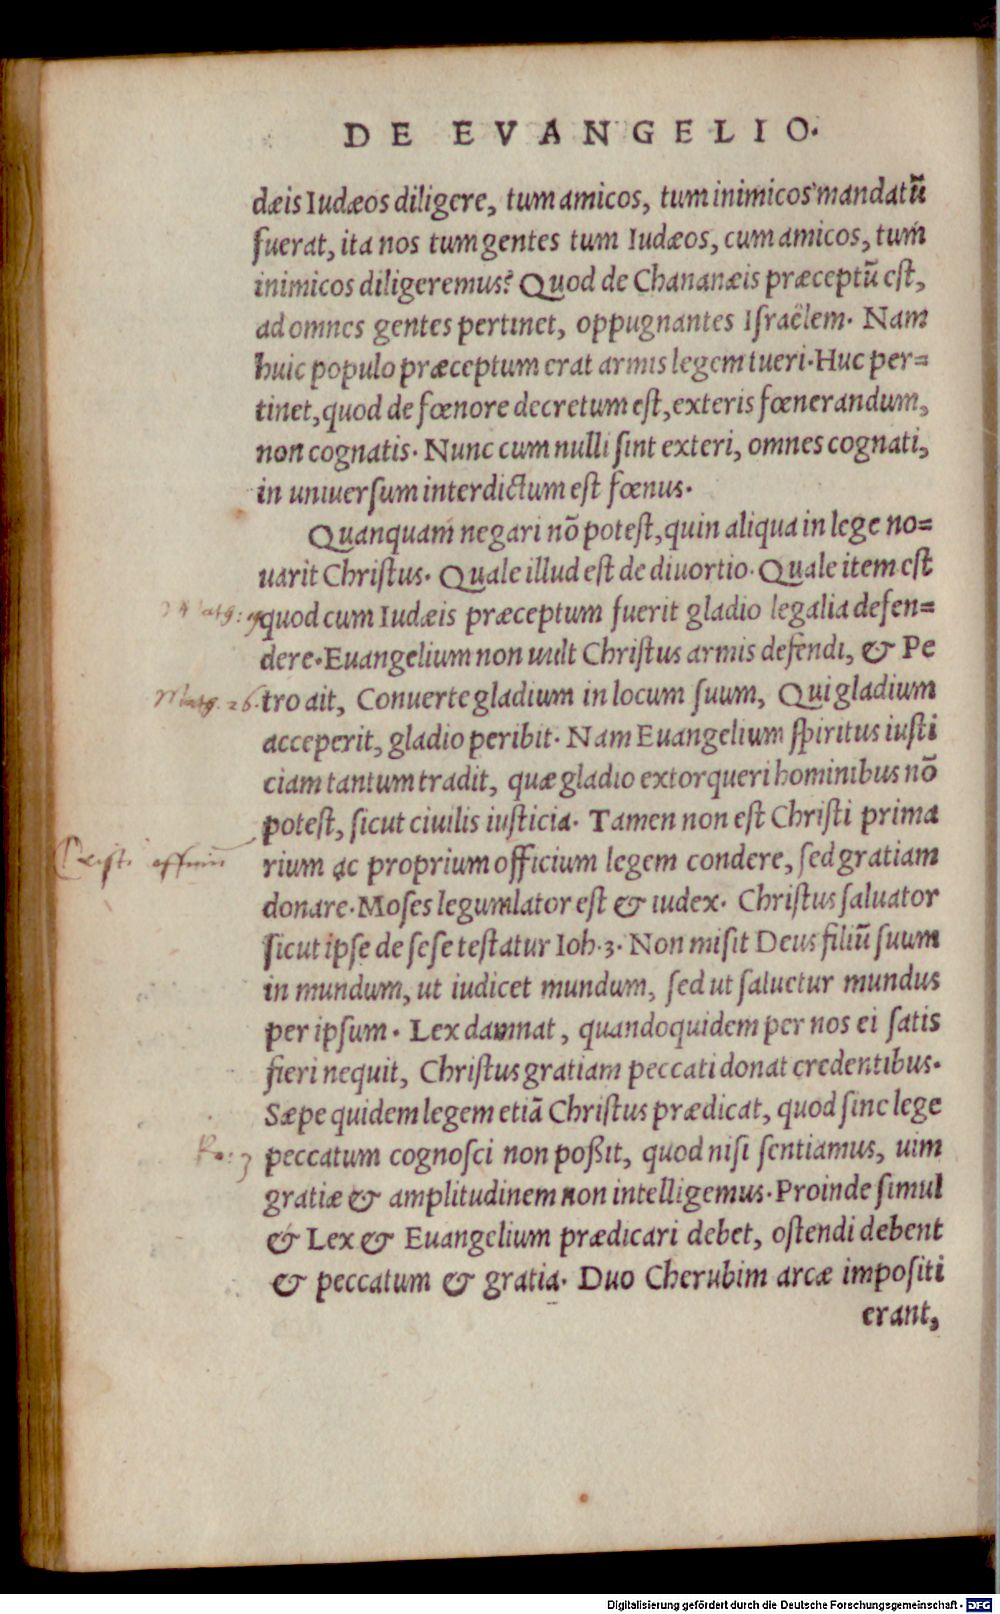 DE EVANGELIO.
dæis Iudæos diligere, tum amicos, tum inimicos mandatũ
fuerat, ita nos tum gentes tum Iudæos, cum amicos, tum
inimicos diligeremus? Quod de Chananæis præceptũ est,
ad omnes gentes pertinet, oppugnantes Israëlem. Nam
huic populo præceptum erat armis legem tueri. Huc per=
tinet, quod de fœnore decretum est, exteris fœnerandum,
non cognatis. Nunc cum nulli sint exteri, omnes cognati,
in uniuersum interdictum est fœnus.
Quanquam negari nõ potest, quin aliqua in lege no=
uarit Christus. Quale illud est de diuortio. Quale item est
quod cum Iudæis præceptum fuerit gladio legalia defen=
dere. Euangelium non uult Christus armis defendi, & Pe
Matth. 26.
tro ait, Conuerte gladium in locum suum, Qui gladium
acceperit, gladio peribit. Nam Euangelium spiritus iusti
ciam tantum tradit, quæ gladio extorqueri hominibus nõ
potest, sicut ciuilis iusticia. Tamen non est Christi prima
Christi officiũ
rium ac proprium officium legem condere, sed gratiam
donare. Moses legumlator est & iudex. Christus saluator
sicut ipse de sese testatur Ioh. 3. Non misit Deus filiũ suum
in mundum, ut iudicet mundum, sed ut saluetur mundus
per ipsum. Lex damnat, quandoquidem per nos ei satis
fieri nequit, Christus gratiam peccati donat credentibus.
Sæpe quidem legem etiã Christus prædicat, quod sine lege
Ro: 3
peccatum cognosci non poßit, quod nisi sentiamus, uim
gratiæ & amplitudinem non intelligemus. Proinde simul
& Lex & Euangelium prædicari debet, ostendi debent
& peccatum & gratia. Duo Cherubim arcæ impositi
erant,
Digitalisierung gefördert durch die Deutsche Forschungsgemeinschaft - DFG